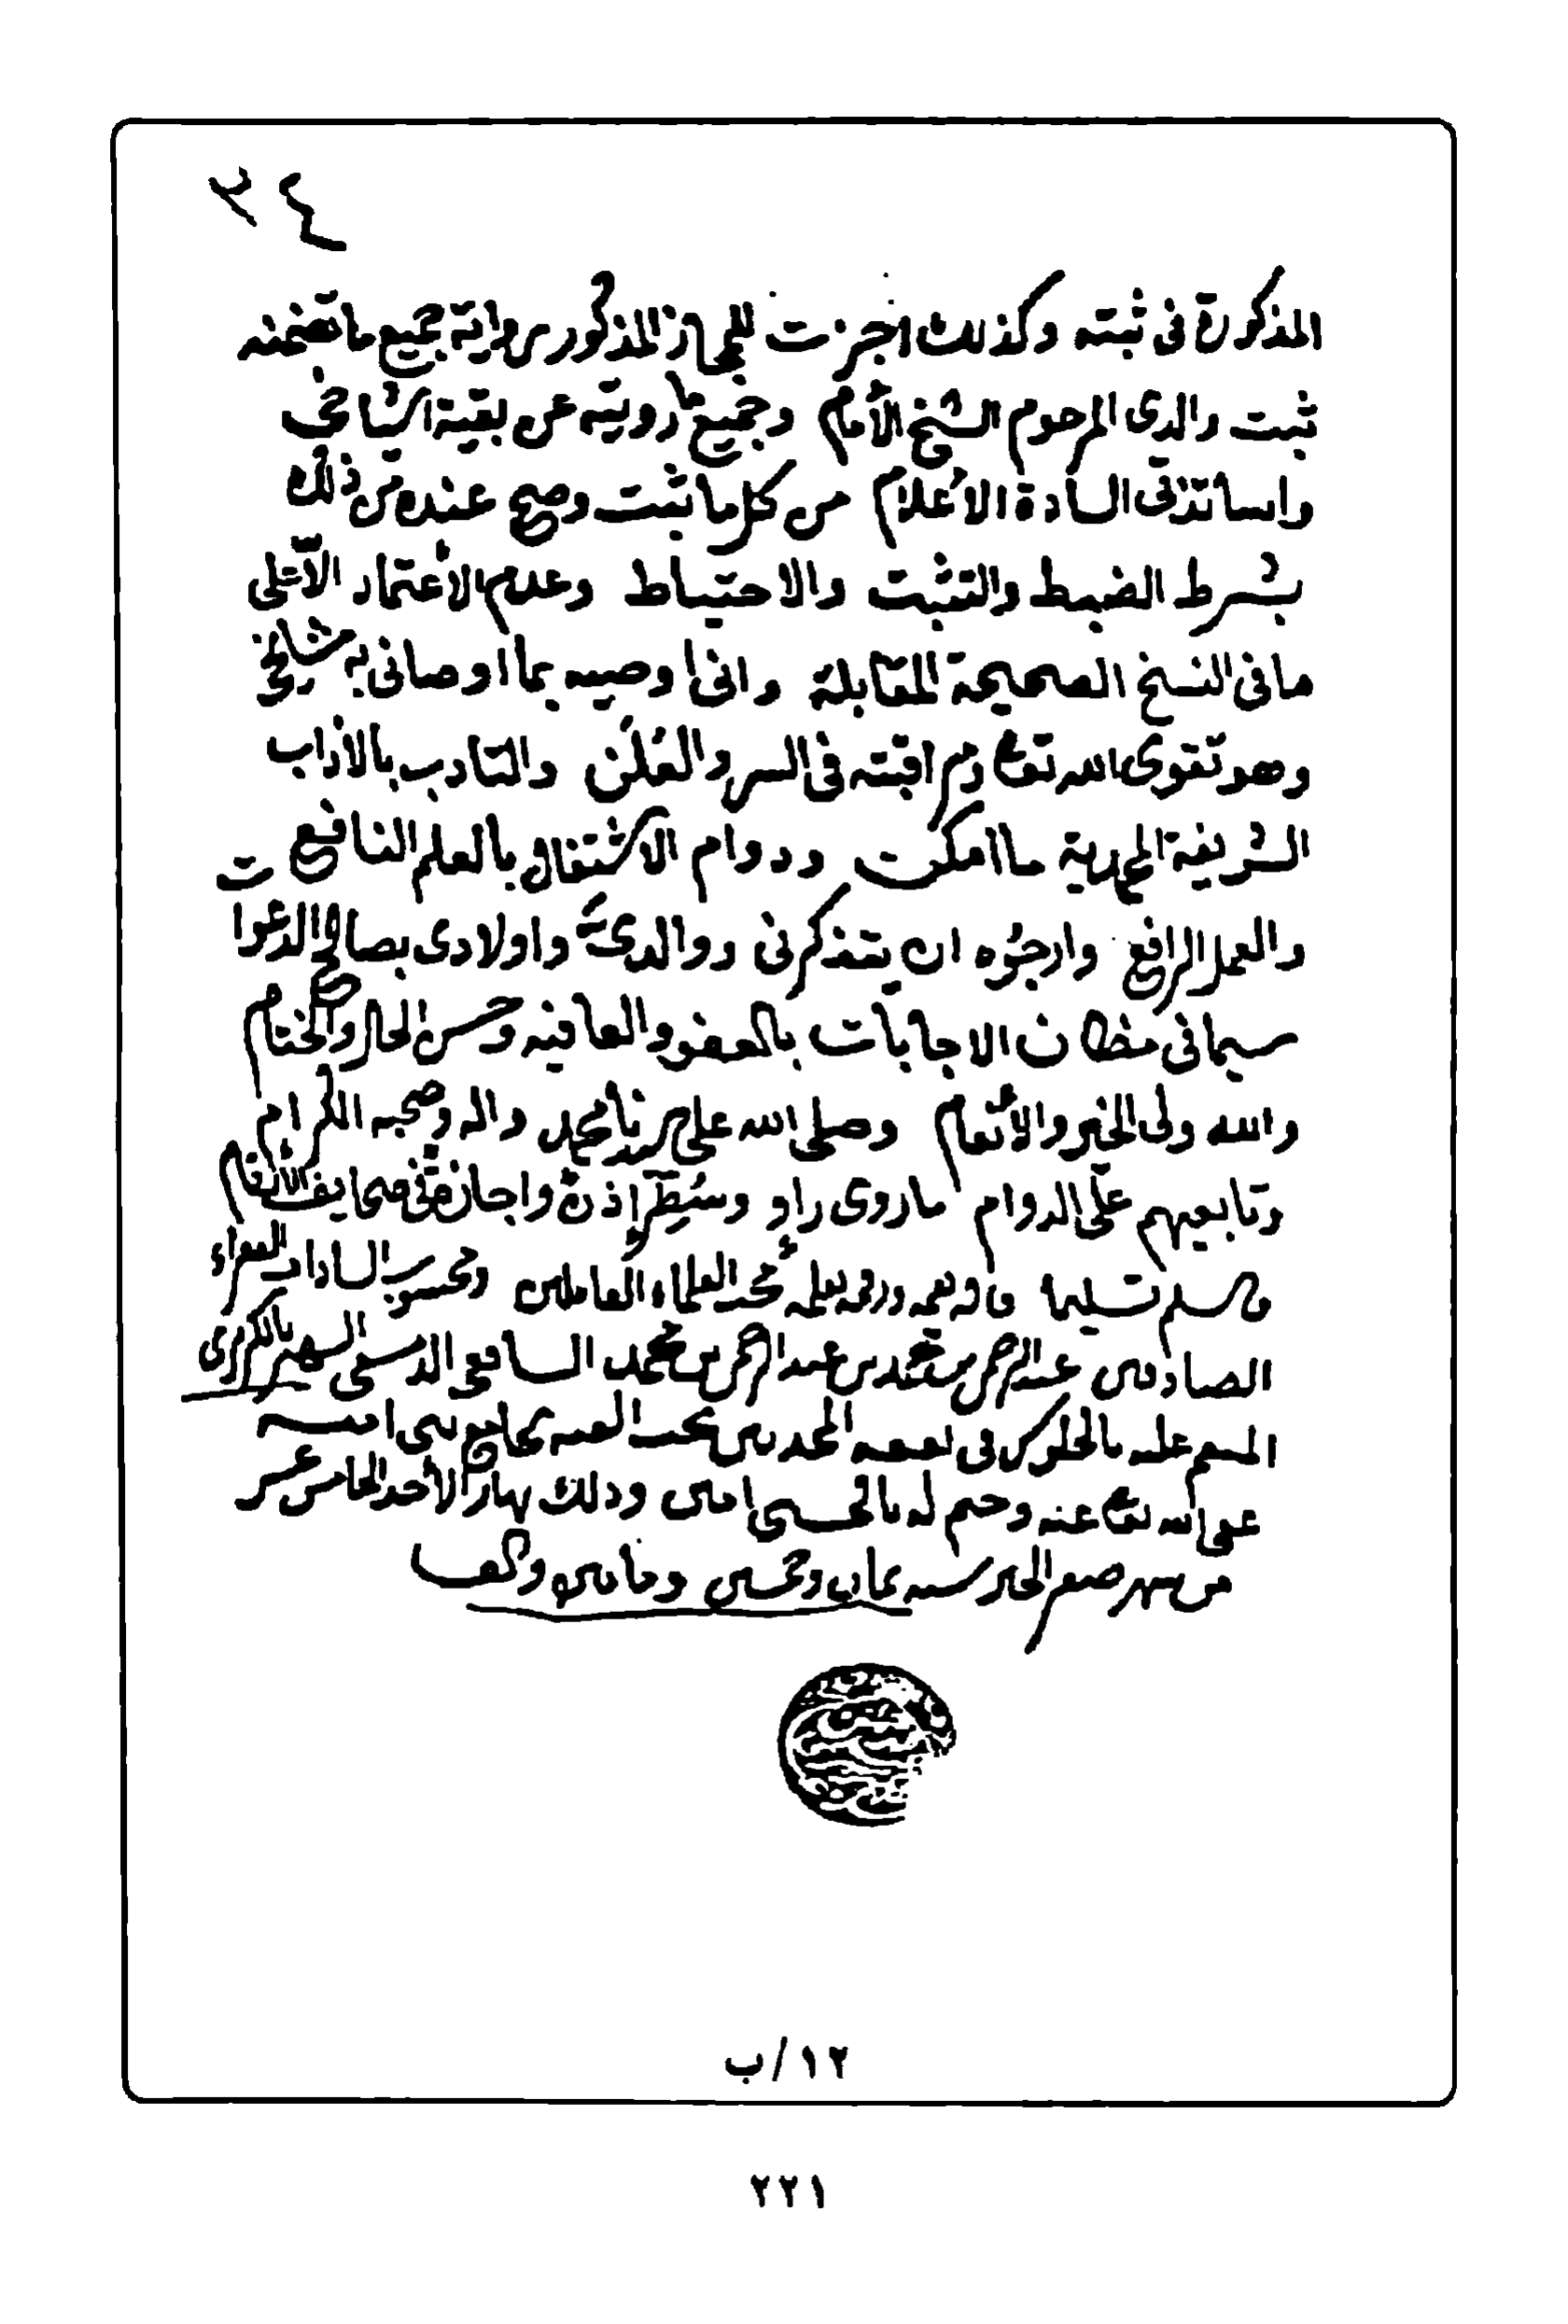 ٢٤
المذكورة في ثبته وكذلك اجزت للمجاز المذكور رواية جميع ما تضمنه
ثبت والدي المرحوم الشيخ الأمام وجميع ما رويته عن بقية اشياخي
واساتذتي السادة الأعلام من كل ما ثبت وصح عنده من ذلك
بشرط الضبط والتثبت والاحتياط وعدم الأعتماد الا على
ما في النسخ الصحيحة المقابلة واني اوصيه بما اوصاني به مشايخي
وهو تقوى الله تعا ومراقبته في السر والعلن والتادب بالاداب
الشريفة المحمدية ما امكنت ودوام الاشتغال بالعلم النافع
والعمل الرافع وارجوه ان يتذكرني ووالدي واولادي بصالح الدعوات
سيما في مظان الاجابات بالعفو والعافيه وحسن الحال والختام
والله ولي الخير والأنعام وصلى الله على سيدنا محمد واله وصحبه الكرام
وتابعيهم على الدوام ما روى راو وسطر اذن واجازة في صحايف الارقام
وسلم تسليما قاله بفمه ورقمه بقلمه محب العلماء العاملين ومحسوب السادات الفقراء
الصادقين عبد الرحمن بن محمد بن عبد الرحمن بن محمد الشافعي الدمشقي الشهير بالكزبري
المنعم عليه بالجلوس في بقعة المحدثين تحت القبه بجامع بني اميه
عفى الله تعا عنه وختم له بالحسنى امين وذلك نهار الأحد الخامس عشر
من شهر صفر الخير سنه ثمان وخمسين ومايتين والف
١٢/ب
٢٢١